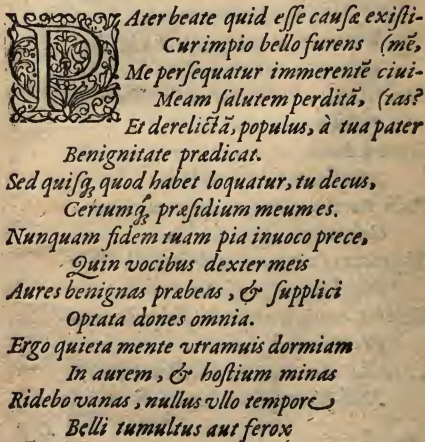 PAter beate quid esse causæ existi-
Cur impio bello furens (mē,
Me persequatur immerentē ciui-
Meam salutem perditā, (tas?
Et derelictā, populus, à tua pater
Benignitate prædicat.
Sed quisq; quod habet loquatur, tu decus,
Certumq; præsidium meum es.
Nunquam fidem tuam pia inuoco prece,
Quin vocibus dexter meis
Aures benignas præbeas, & supplici
Optata dones omnia.
Ergo quieta mente vtramuis dormiam
In aurem, & hostium minas
Ridebo vanas, nullus vllo tempore
Belli tumultus aut ferox